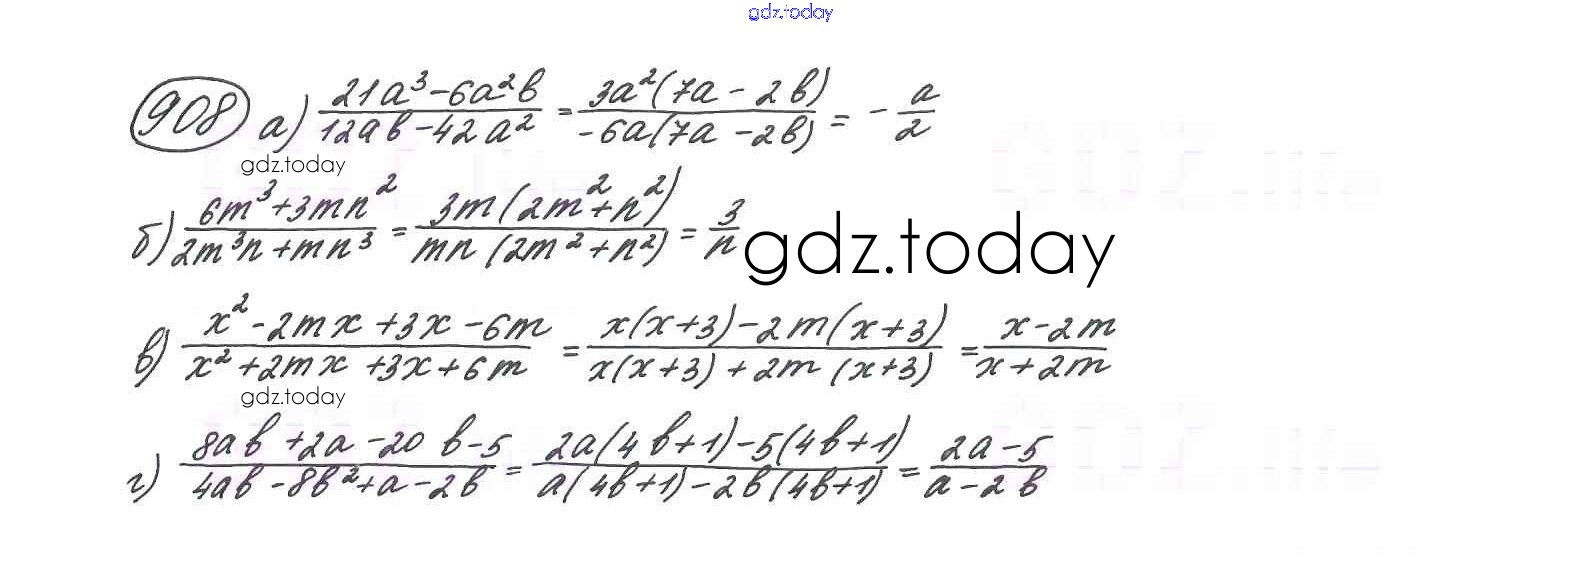 gdz.today
908 а) (21a³-6a²b)/(12ab-42a²) = (3a²(7a-2b))/(-6a(7a-2b)) = -a/2
gdz.today
б) (6m³+3mn²)/(2m³n+mn³) = (3m(2m²+n²))/(mn(2m²+n²)) = 3/n
gdz.today
в) (x²-2mx+3x-6m)/(x²+2mx+3x+6m) = (x(x+3)-2m(x+3))/(x(x+3)+2m(x+3)) = (x-2m)/(x+2m)
gdz.today
г) (8ab+2a-20b-5)/(4ab-8b²+a-2b) = (2a(4b+1)-5(4b+1))/(a(4b+1)-2b(4b+1)) = (2a-5)/(a-2b)